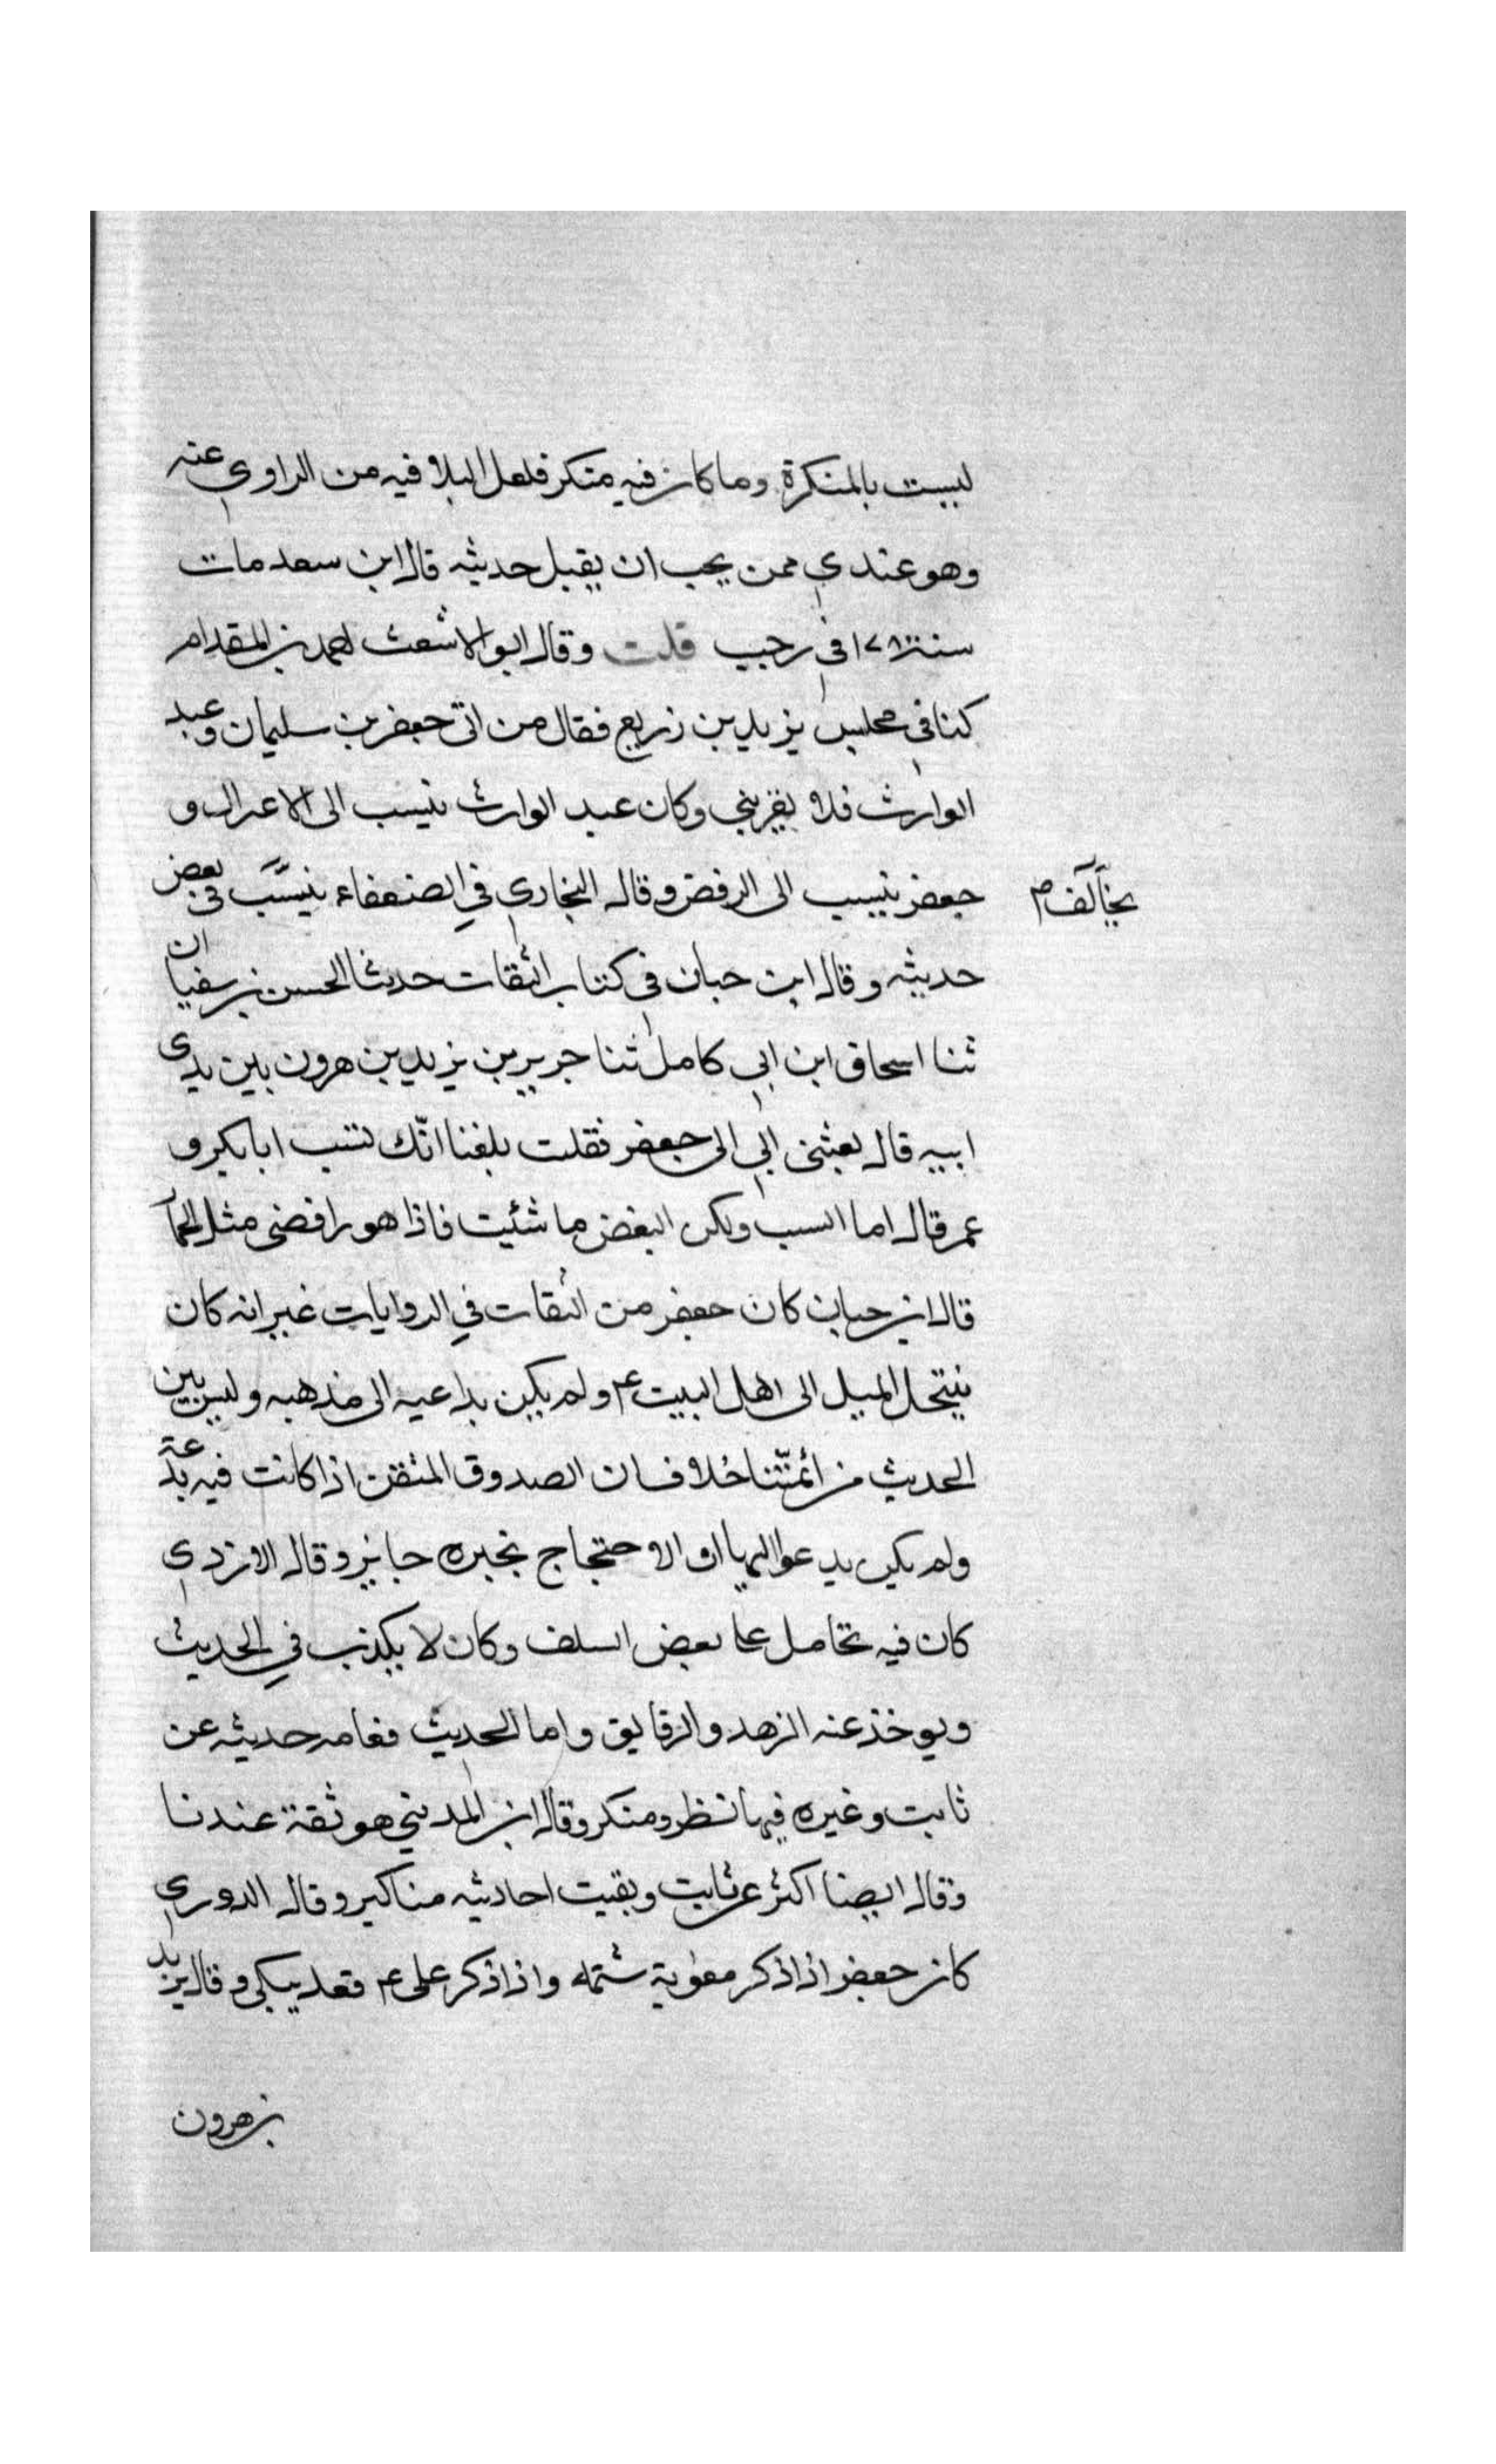 ليست بالمنكرة وما كان فيه منكر فلعل البلا فيه من الراوى عنه
وهو عندي ممن يجب ان يقبل حديثه قال ابن سعد مات
سنة ١٧٨ فى رجب قلت وقال ابو الاشعث احمد بن المقدام
كنا فى مجلس يزيد بن زريع فقال من اتى جعفر بن سليمان وعبد
الوارث فلا يقربني وكان عبد الوارث ينسب الى الاعزال و
جعفر ينسب الى الرفض وقال البخاري في الضعفاء ينسب فى بعض
يخالف م
حديثه وقال ابن حبان فى كتاب الثقات حدثنا الحسن بن سفيان
ثنا اسحاق ابن ابي كامل ثنا جرير بن يزيد بن هرون بين يدي
ابيه قال بعثنى ابي الى جعفر فقلت بلغنا انّك تسب ابا بكر و
عمر قال اما السب ولكن البغض ما شئيت فاذا هو رافضى مثل الحما
قال ابن حبان كان جعفر من الثقات في الروايات غير انه كان
ينتحل الميل الى اهل البيت ع م ولم يكن بداعيه الى مذهبه وليس بين
الحديث من ائمتّنا خلاف ان الصدوق المتقن اذا كانت فيه بدعة
ولم يكن يدعوا اليها ان الاحتجاج بخبره جايز وقال الازدي
كان فيه تحامل على بعض السلف وكان لا يكذب في الحديث
ويوخذ عنه الزهد والرقايق واما الحديث فعامه حديثه عن
ثابت وغيره فيها نظر ومنكر وقال ابن المديني هو ثقة عندنا
وقال ايضا اكثر عن ثابت وبقيت احاديثه مناكير وقال الدوري
كان جعفر اذا ذكر معوية شتمه واذا ذكر على ع م قعد يبكى وقال يزيد
بن هرون